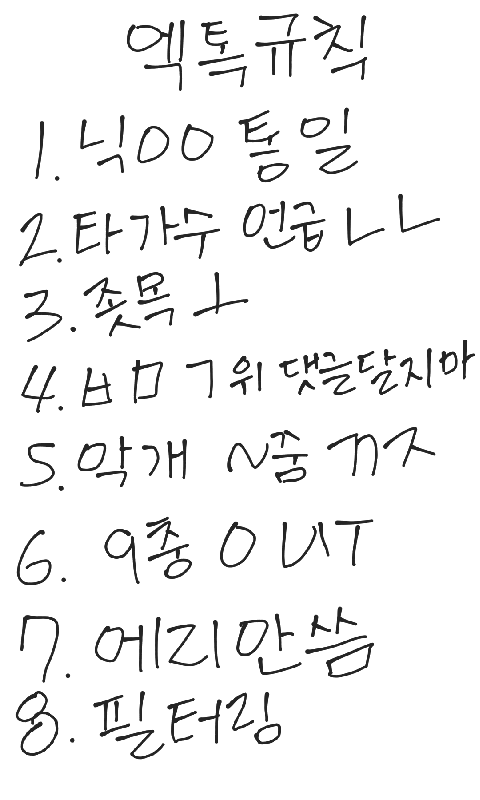 엑톡규칙
1. 닉OO 통일
2. 타가수 언급 ㄴㄴ
3. 좃목 ㅗ
4. ㅂㅁㄱ위 댓글달지마
5. 막개 ~줌 ㄲㅈ
6. 9충 OUT
7. 에리안씀
8. 필터링